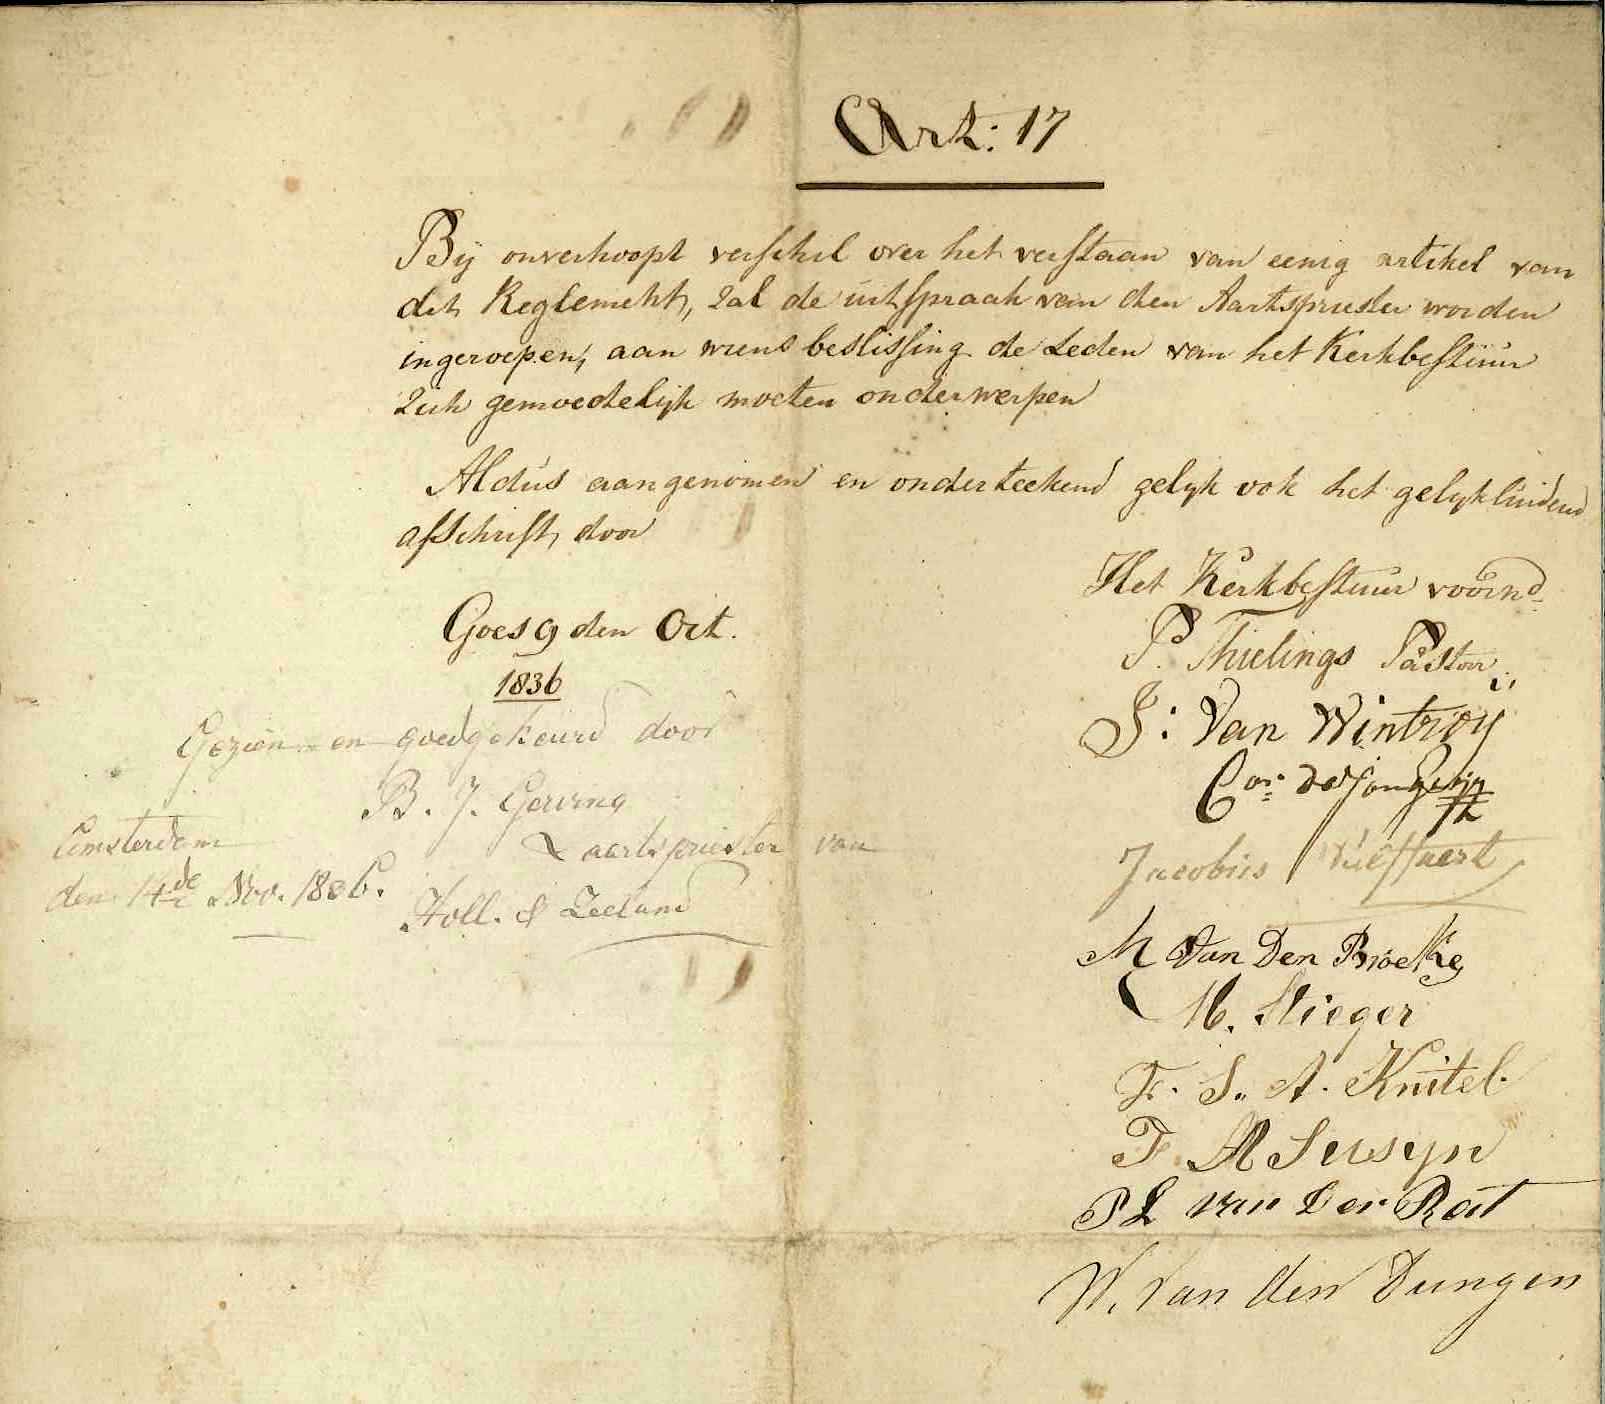 Art: 17
Bij onverhoopt verschil over het verstaan van eenig artikel van
dit Reglement, zal de uitspraak van den Aartspriester worden
ingeroepen, aan wiens beslissing de Leden van het Kerkbestuur
zich gemoedelijk moeten onderwerpen
Aldus aangenomen en onderteekend gelijk ook het gelijkluidend
afschrift, door
Het Kerkbestuur voornd.
Goes 9 den Oct.
1836
P. Thielings Pastoor
J: Van Wintroy
Cor:
Jacobus
M Van Den Broeke
M. Stieger
F. S. A. Knitel
F. M Sersyn
P L van Der Rat
W. Van den Dungen
Gezien en goedgekeurd door
B. J. Gerving
aartspriester van
Holl. & Zeeland
Amsterdam
den 14de Nov. 1836.